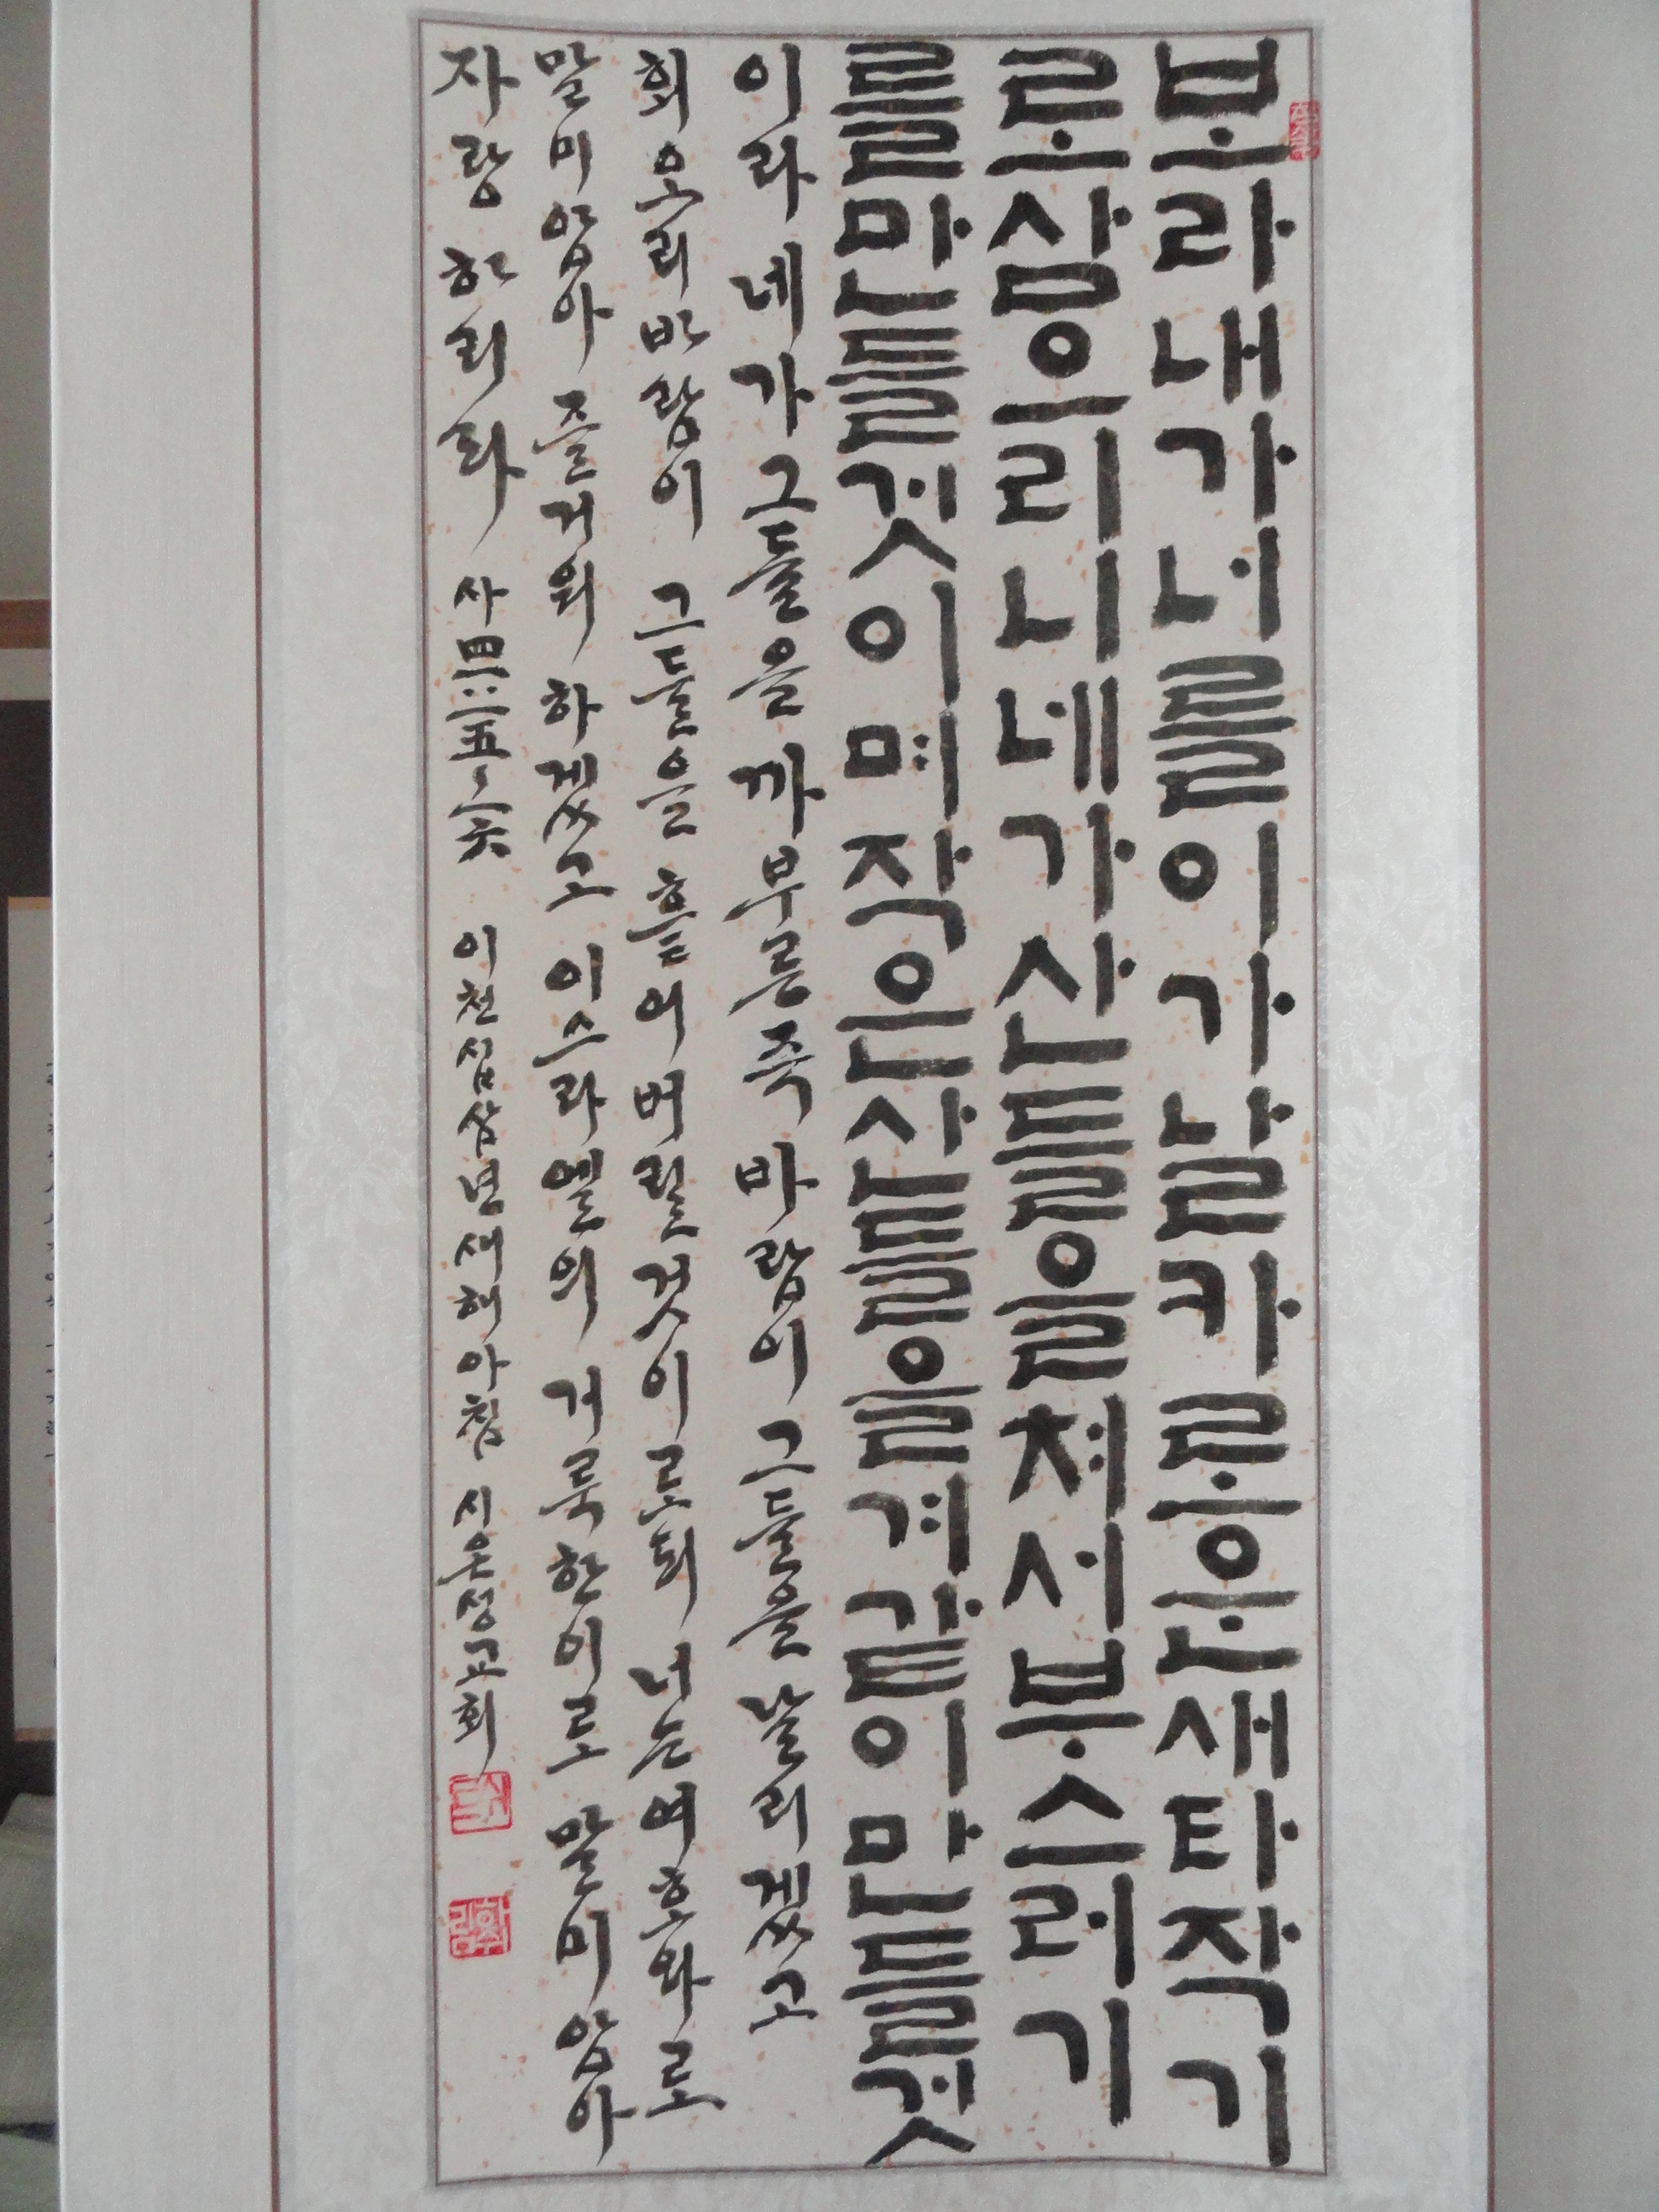 보라내가너를이가날카로운새타작기
로삼으리니네가산들을쳐서부스러기
를만들것이며작은산들을겨같이만들것
이라 네가 그들을 까부른즉 바람이 그들을 날리겠고
회오리바람이 그들을 흩어버릴것이로되 너는 여호와로
말미암아 즐거워하겠고 이스라엘의 거룩한이로 말미암아
자랑하리라 사四一:一五、一六 이천십삼년새해아침 시은성교회